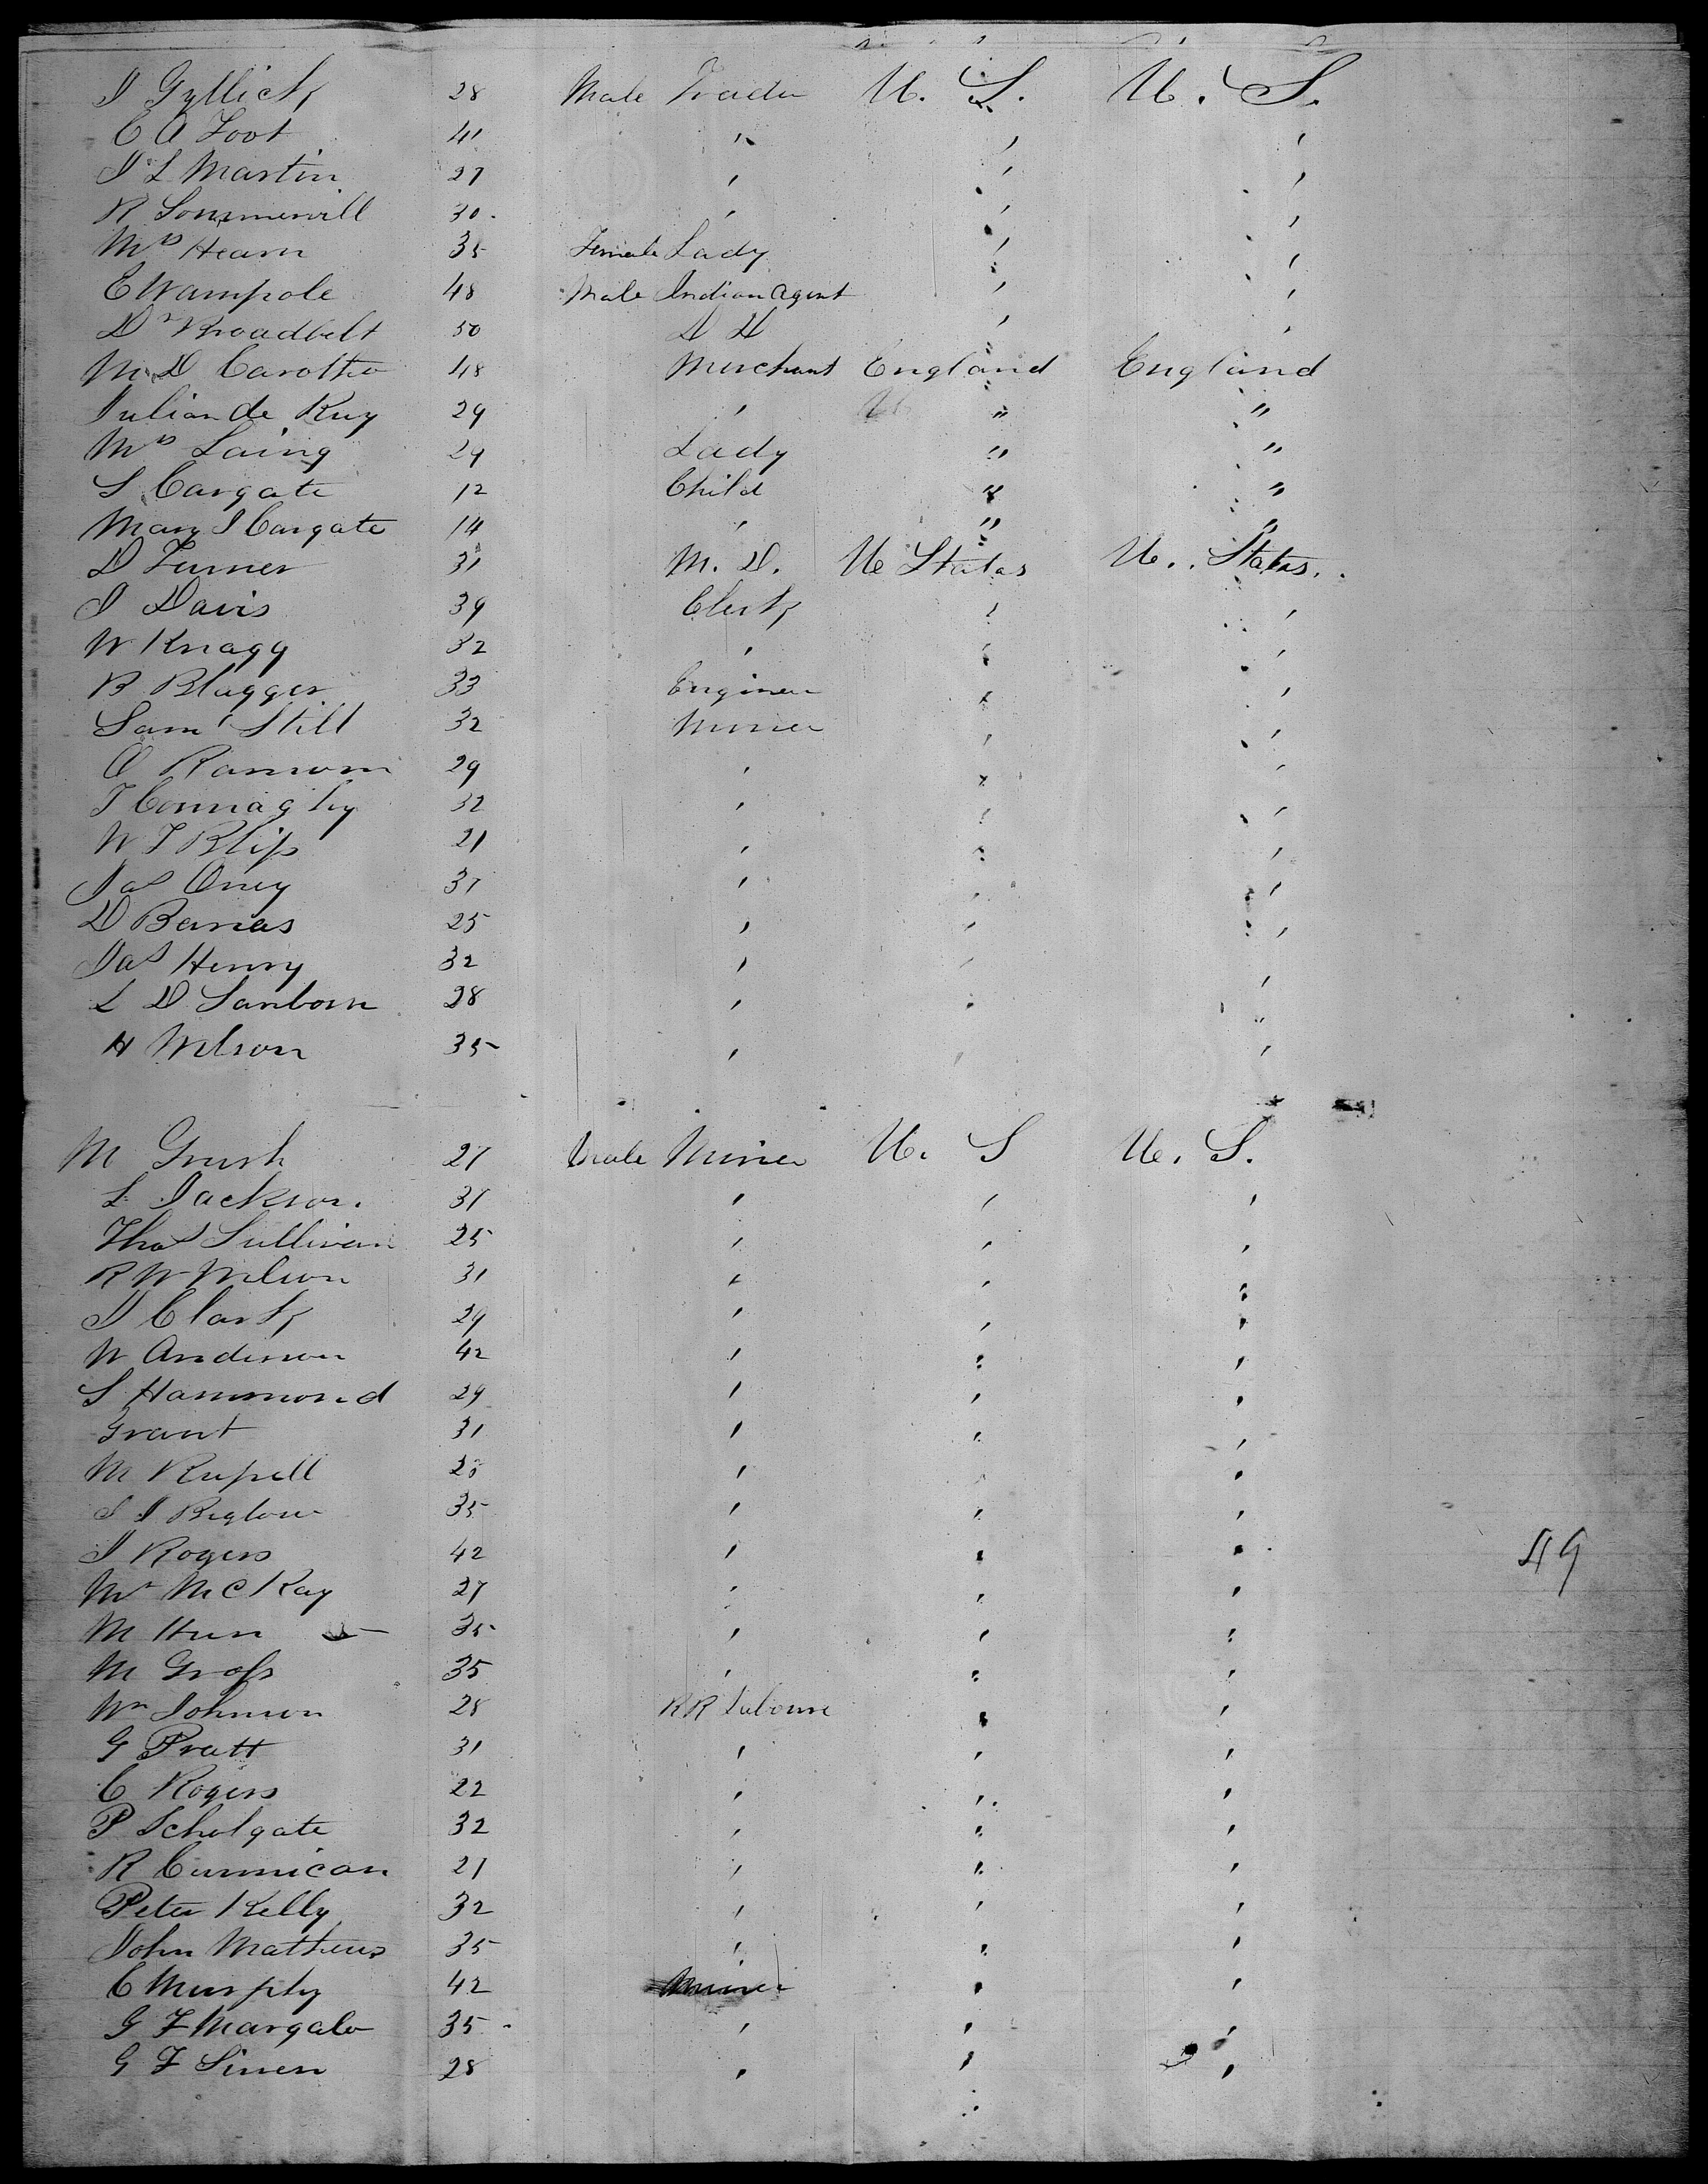 J Gyllick 28 Male Trader U. S. U. S.
C A Foot 41 " " "
J L Martin 27 " " "
R Sommervill 30 " " "
Mrs Hearn 35 Female Lady " "
E Wampole 48 Male Indian Agent " "
Dr Broadbelt 50 " "
M D 48 Merchant England England
Julian de Ruy 29 " " "
Mrs Laing 29 Lady " "
S Cargate 12 Child " "
Mary J Cargate 14 " " "
D Turner 31 M. D. U States U. States
J Davis 39 Clerk " "
W Knagg 32 " " "
B Blagger 33 Engineer " "
Saml Still 32 Miner " "
O Ransom 29 " " "
T 32 " " "
W T Bliss 21 " " "
Jas Oney 31 " " "
D Barras 25 " " "
Jas Henry 32 " " "
L D Sanborn 28 " " "
H Wilson 35 " " "
M Grush 27 Male Miner U. S U. S.
L Jackson 31 " " "
Thos Sullivan 25 " " "
R W Wilson 31 " " "
J Clark 29 " " "
W Anderson 42 " " "
S Hammond 29 " " "
Grant 31 " " "
M Russell " " "
S J Biglow 35 " " "
J Rogers 42 " " "
Mr McKay 27 " " "
M Hun 35 " " "
M Gross 35 " " "
Wm Johnson 28 RR Laborer " "
G Pratt 31 " " "
C Rogers 22 " " "
P Scholgate 32 " " "
R Cunnican 21 " " "
Peter Kelly 32 " " "
John Mathews 35 " " "
C Murphy 42 Miner " "
G F Margalo 35 " " "
G F Sinen 28 " " "
49